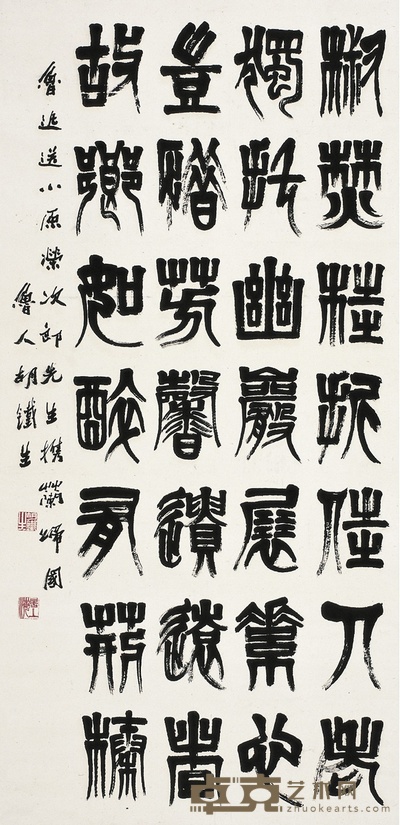 椒焚桂折佳人老
獨托幽巖展素心
豈惜芳馨遺遠者
故鄉如醉有荊榛
魯迅送小原榮次郎先生攜蘭歸國
魯人胡鐵生
卓克艺术网
zhuokearts.com